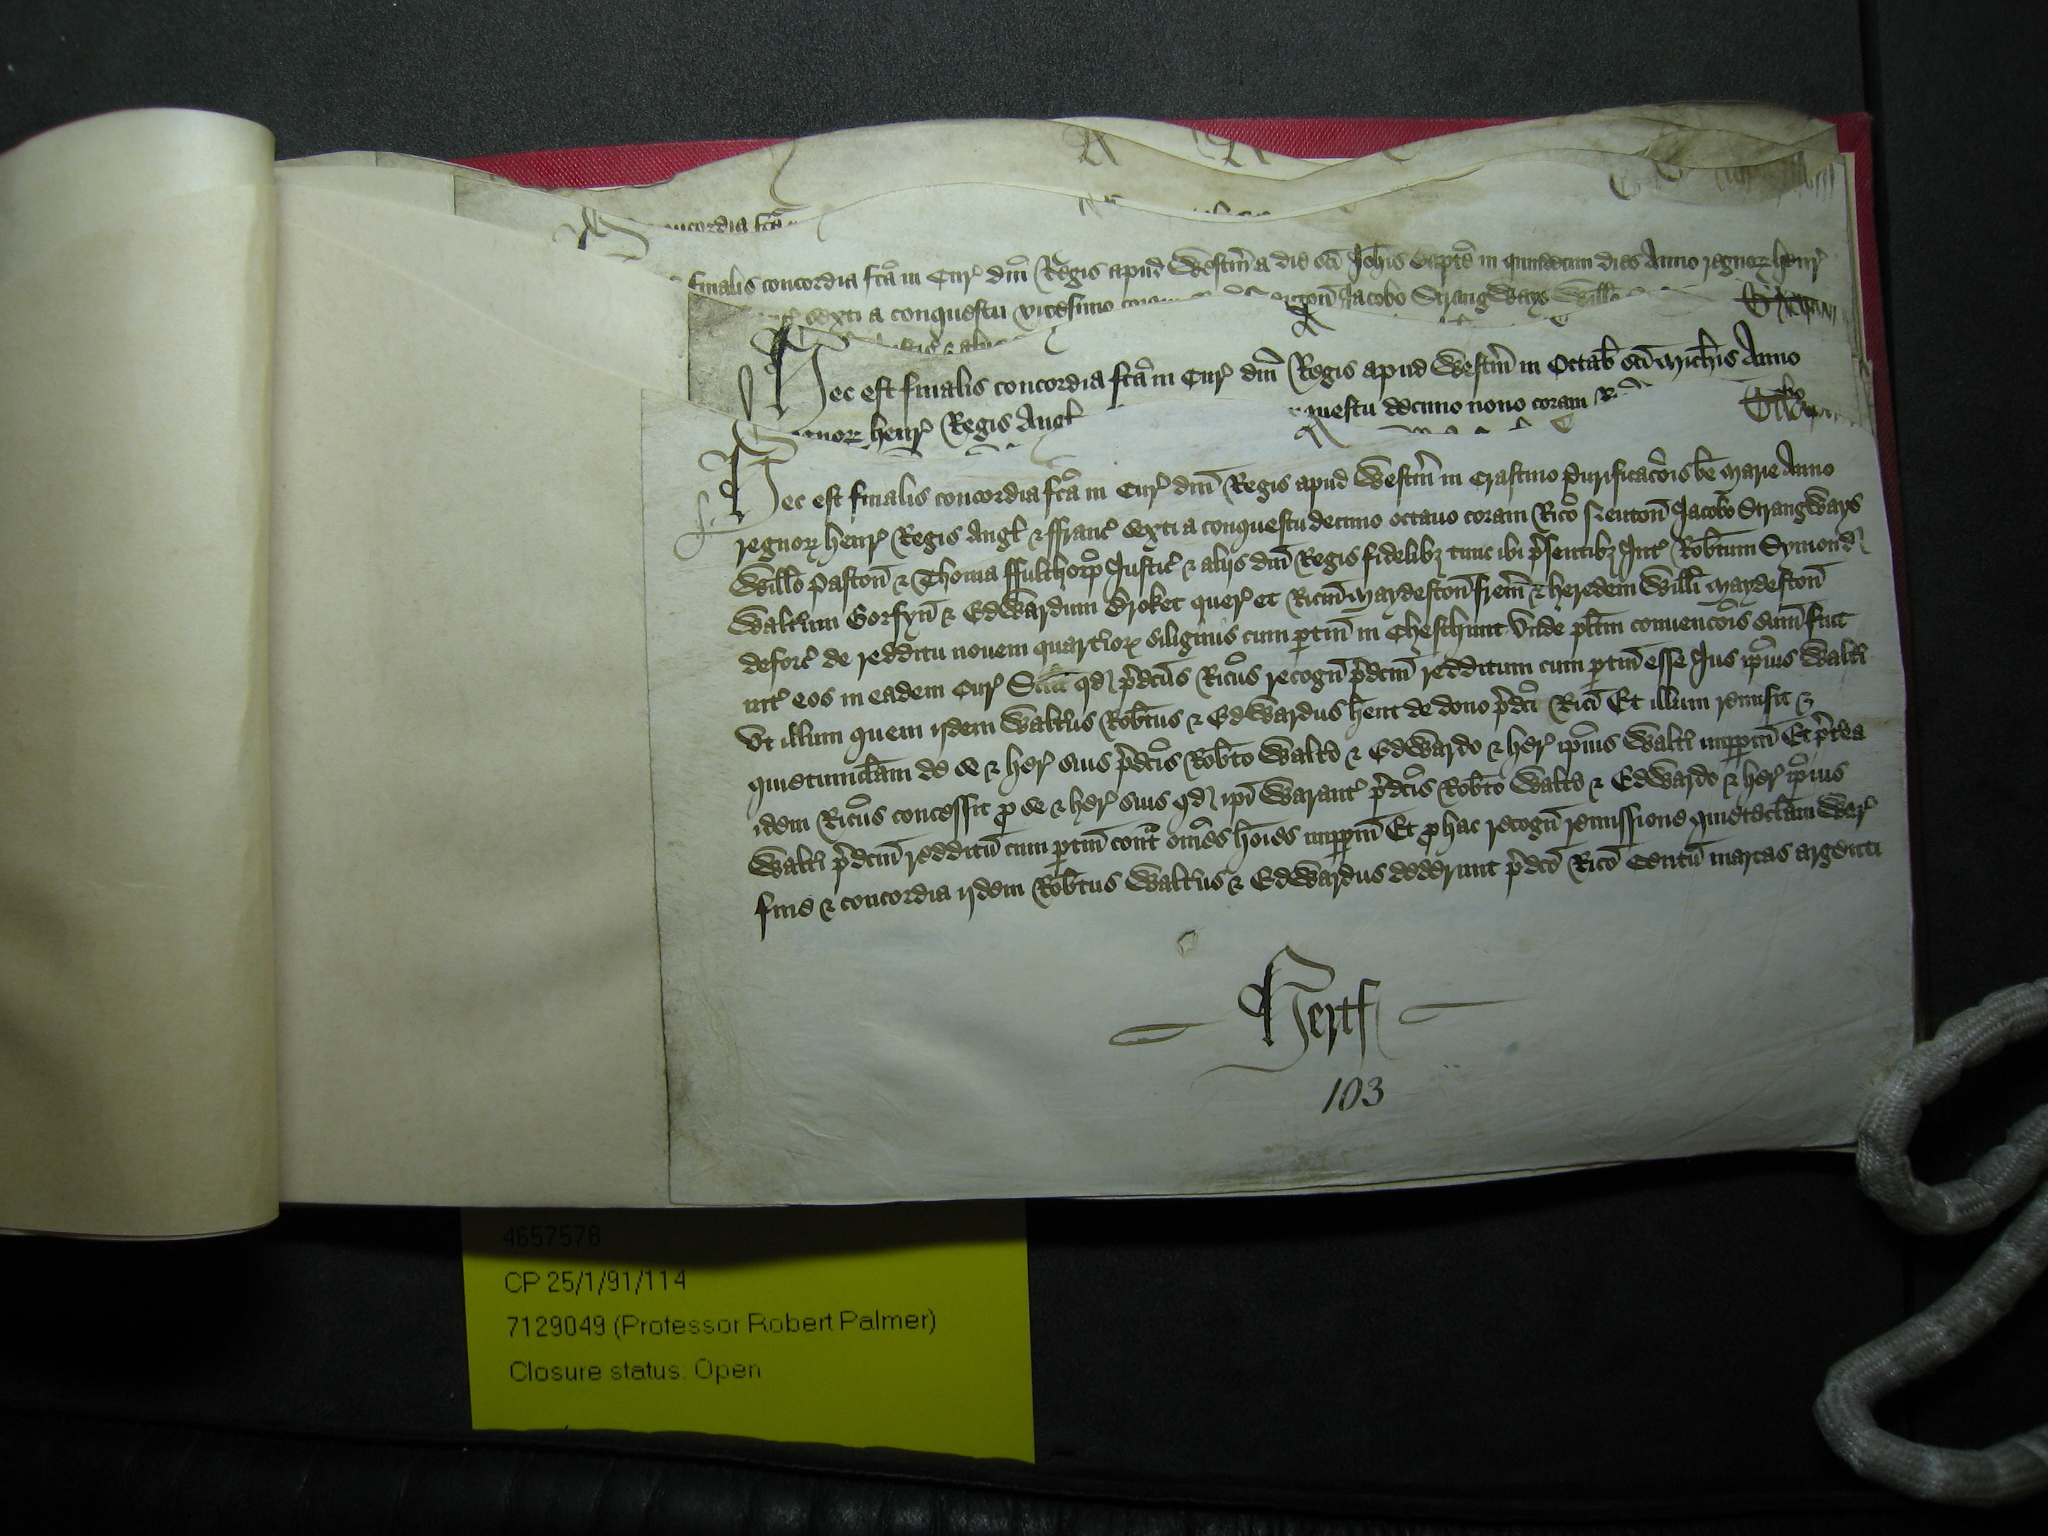 concordia fcã
finalis concordia fcã in Cur̉ dnĩ Regis apud Westm̃ a die sci Johis Bapte in quindecim dies Anno regnoꝝ Henr̉
sexti a conquestu vicesimo Jacobo Strangways Willo
Hec est finalis concordia fcã in Cur̉ dnĩ Regis apud Westm̃ in Octab̃ sci Michis Anno
Henr̉ Regis Angl conquestu decimo nono coram
Hec est finalis concordia fcã in Cur̉ dnĩ Regis apud Westm̃ in Crastino Purificacõis bẽ Marie Anno
regnoꝝ Henr̉ Regis Angl ⁊ ffranc̉ sexti a conquestu decimo octauo coram Ricõ Neutoñ Jacobo Strangways
Willo Pastoñ ⁊ Thoma ffulthorp̃ Justic̉ ⁊ alijs dnĩ Regis fidelibꝫ tunc ibi p̃sentibꝫ Int̉ Robtum Symond
Waltum Gorfyñ ⁊ Edwardum Broket quer̉ et Ricm̃ Maydestoñ frem̃ ⁊ heredem Willi Maydestoñ
deforc̉ de redditu nouem quarterioꝝ siliginis cum ptiñ in Chesthunt Vnde plitm̃ conuencõis sum̃ fuit
int̉ eos in eadem Cur̉ Scilt qd p̃dcũs Ricũs recogñ p̃dcm̃ redditum cum ptiñ esse Jus ip̃ius Walti
Vt illum quem ijdem Waltus Robtus ⁊ Edwardus hent de dono p̃dci Rici Et illum remisit ⁊
quietumclam̃ de se ⁊ her̉ suis p̃dcis Robto Walto ⁊ Edwardo ⁊ her̉ ip̃ius Walti imppm̃ Et p̃tea
idem Ricũs concessit ꝑ se ⁊ her̉ suis qd ipi Warant̉ p̃dcis Robto Walto ⁊ Edwardo ⁊ her̉ ip̃ius
Walti p̃dcm̃ redditũ cum ptiñ cont̃ om̃es hoies imppm̃ Et ꝑ hac recogñ remissione quietaclam̃ War̉
fine ⁊ concordia ijdem Robtus Waltus ⁊ Edwardus dederunt p̃dco Rico Centũ marcas argenti
Hertf
103
4657578
CP 25/1/91/114
7129049 (Professor Robert Palmer)
Closure status: Open